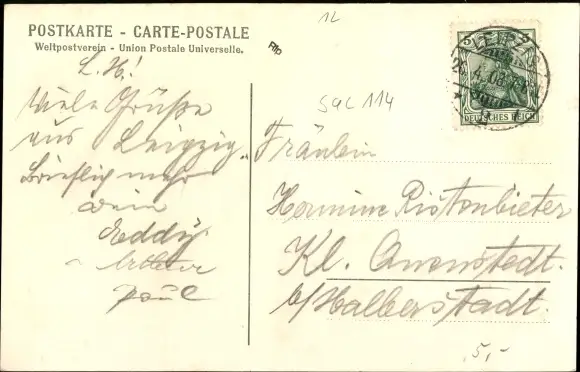 POSTKARTE - CARTE-POSTALE
Weltpostverein - Union Postale Universelle.
L. H.!
Viele Grüße
aus Leipzig.
Brieflich mehr
Dein
Eddy
Paul
1L
SGC 114
LEIPZIG
DEUTSCHES REICH
Fräulein
Hermine Ristenbieter
Kl. Quenstedt.
b/Halberstadt.
5,-